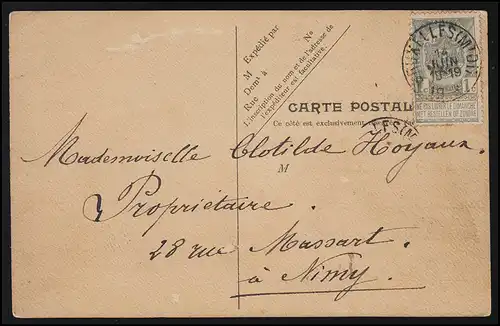 Nº
Expédié par
M
Demt à
Rue
L'inscription du nom et de l'adresse de
l'expéditeur est facultative.
BRUXELLES (MIDI)
JUIN
1
NE PAS LIVRER LE DIMANCHE
NIET BESTELLEN OP ZONDAG
CARTE POSTAL
Ce côté est exclusivement
Mademoiselle Clotilde Hoyaux
M
Propriétaire.
28 rue Massart.
à Nimy.